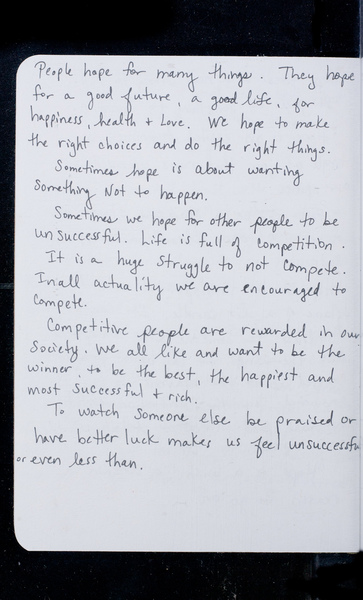 People hope for many things. They hope
for a good future, a good life, for
happiness, health + Love. We hope to make
the right choices and do the right things.
Sometimes hope is about wanting
Something Not to happen.
Sometimes we hope for other people to be
unsuccessful. Life is full of competition.
It is a huge struggle to not compete.
Inall actuality we are encouraged to
compete.
Competitive people are rewarded in our
Society. We all like and want to be the
winner, to be the best, the happiest and
most successful + rich.
To watch someone else be praised or
have better luck makes us feel unsuccessfu
or even less than.